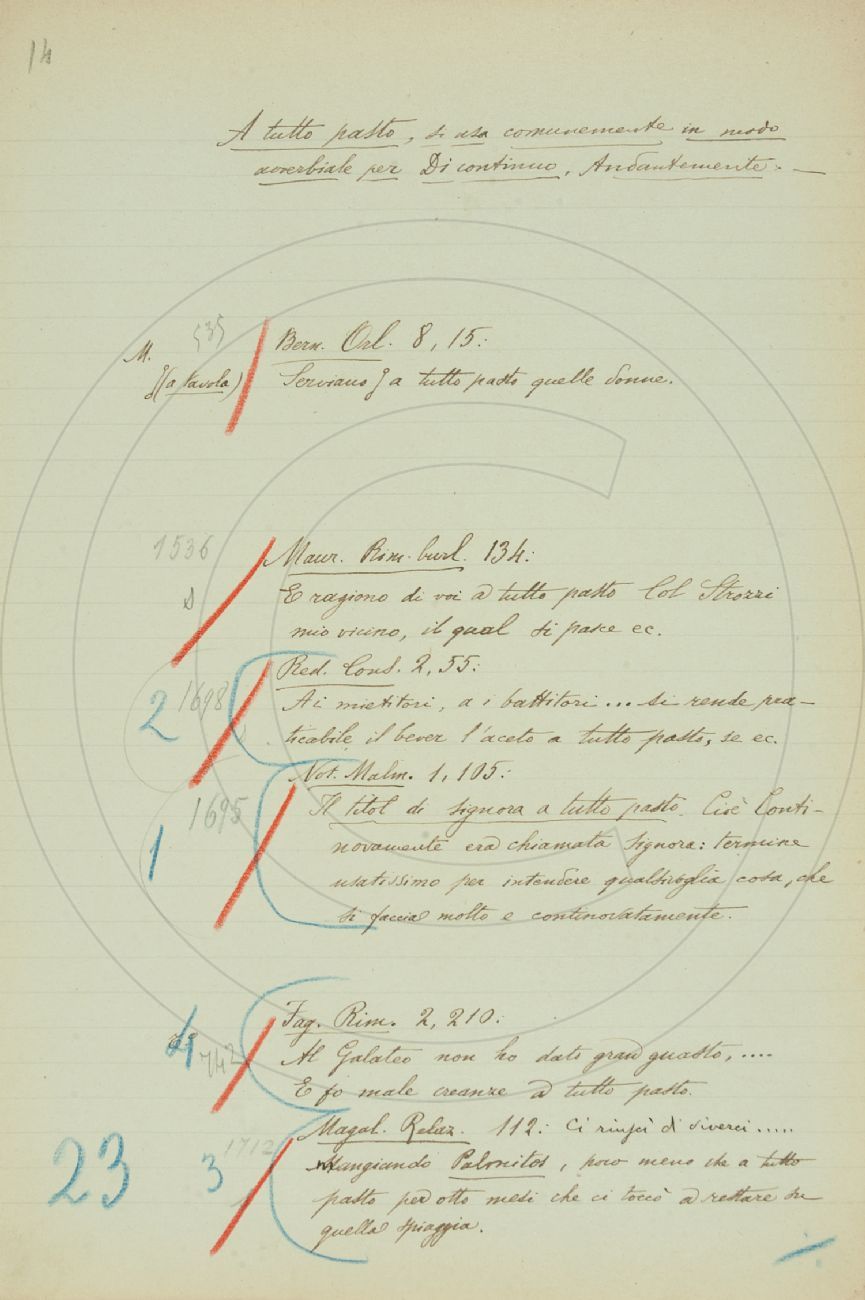 14
A tutto pasto, si usa comunemente in modo
avverbiale per Di continuo, Andantemente. —
M. 535 Bern. Orl. 8, 15:
}(a tavola) Serviano} a tutto pasto quelle donne.
1536 Maur. Rim. burl. 134:
E ragiono di voi a tutto pasto Col Strozzi
mio vicino, il qual si pasce ec.
Red. Cons. 2, 55:
2 1698 Ai mietitori, a i battitori... si rende pra-
ticabile il bever l'aceto a tutto pasto, se ec.
Not. Malm. 1, 105:
1695 Il titol di signora a tutto pasto. Cioè Conti-
1 novamente era chiamata Signora: termine
usatissimo per intendere qualsivoglia cosa, che
si faccia molto e continovatamente.
Fag. Rim. 2, 210:
4 742 Al Galateo non ho dato gran guasto, ....
E fo male creanze a tutto pasto.
Magal. Relaz. 112: Ci riuscì di viverci .....
23 3 1712 Mangiando Palmitos, poco meno che a tutto
pasto per otto mesi che ci toccò a restare su
quella spiaggia.